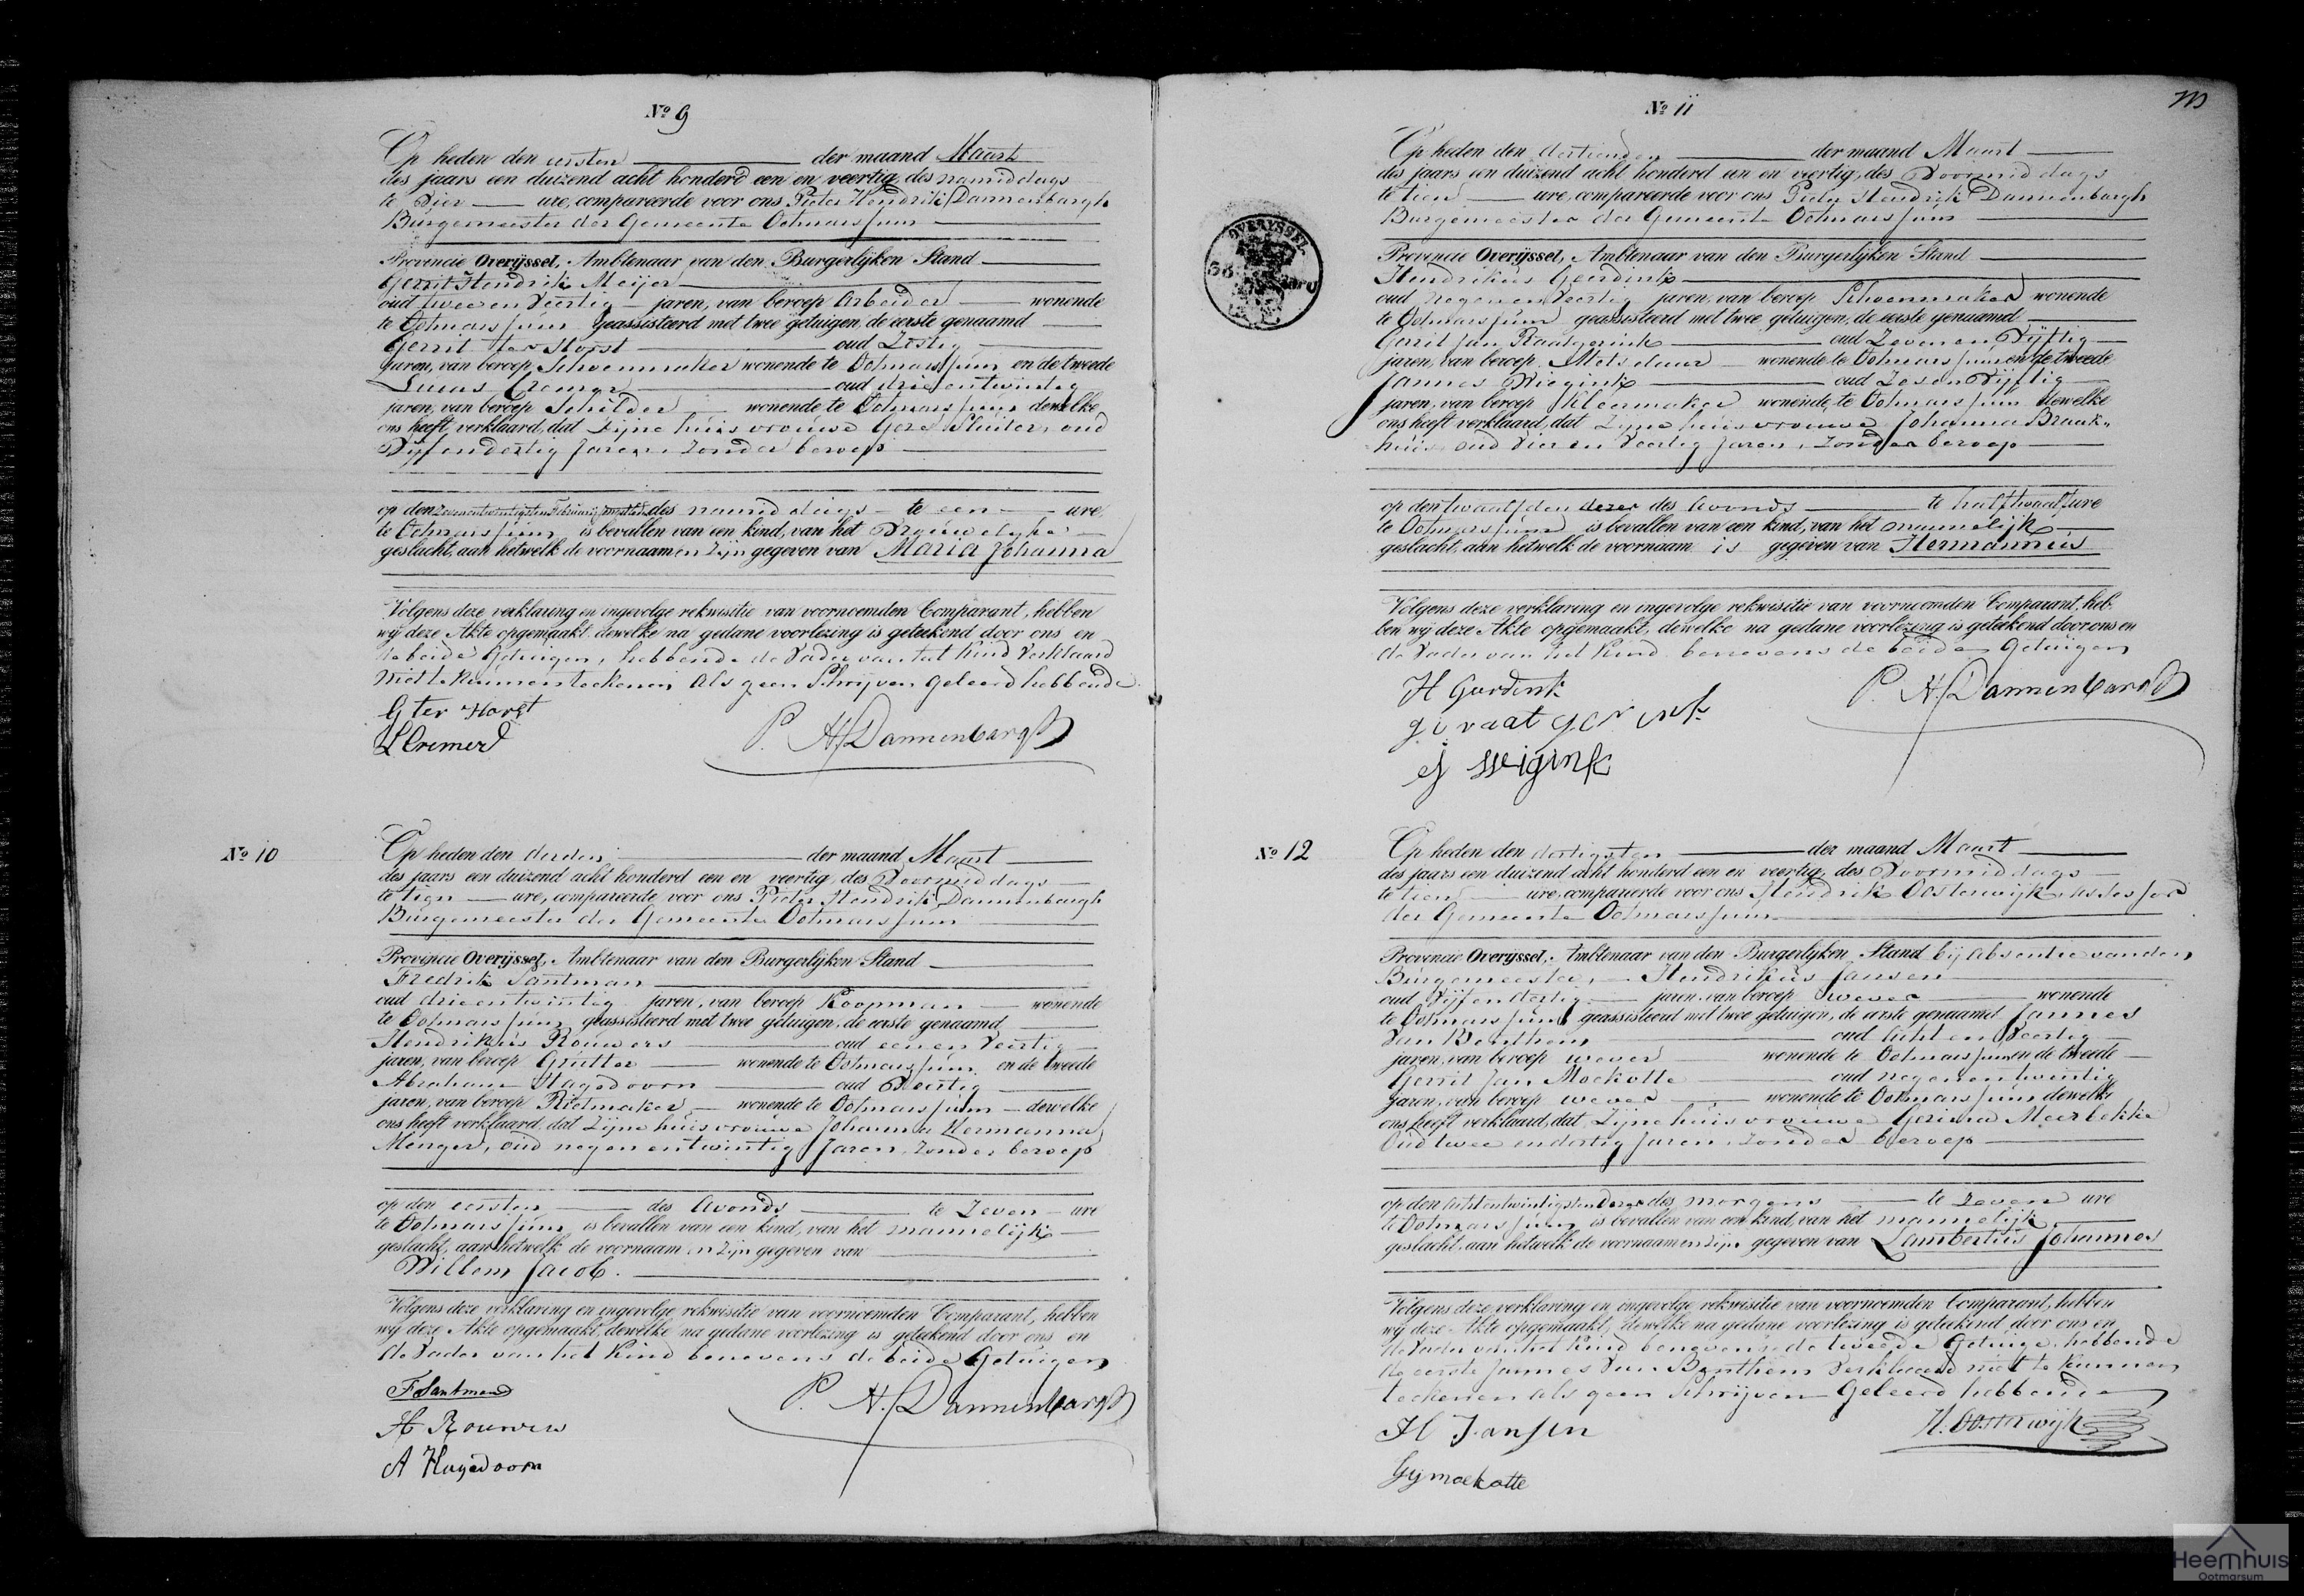 No 9
Op heden den eersten der maand Maart
des jaars een duizend acht honderd een en veertig, des namiddags
te Vier ure, compareerde voor ons Pieter Hendrik Dannenbargh
Burgemeester der Gemeente Ootmarssum
Provincie Overijssel, Ambtenaar van den Burgerlijken Stand
Gerrit Hendrik Meijer
oud twee en Veertig jaren, van beroep Arbeider wonende
te Ootmarssum geassisteerd met twee getuigen, de eerste genaamd
Gerrit ter Horst oud Zestig
jaren, van beroep Schoenmaker wonende te Ootmarssum en de tweede
Lucas Cremer oud drie entwintig
jaren, van beroep Schilder wonende te Ootmarssum dewelke
ons heeft verklaard, dat zijne huisvrouwe Gese Sluiter, oud
Vijf endertig Jaren, Zonder beroep
op den zevenentwintigsten Februarij des namiddags te een ure
te Ootmarssum is bevallen van een kind, van het Vrouwelyke
geslacht, aan hetwelk de voornaamen zijn gegeven van Maria Johanna
Volgens deze verklaring en ingevolge rekwisitie van voornoemden Comparant, hebben
wij deze Akte opgemaakt, dewelke na gedane voorlezing is geteekend door ons en
de beide Getuigen, hebbende de Vader van het Kind Verklaard
niet te kunnen teekenen als geen Schrijven geleerd hebbende
G ter Horst
L Cremer
P. H. Dannenbargh
No 10
Op heden den derden der maand Maart
des jaars een duizend acht honderd een en veertig, des Voormiddags
te tien ure, compareerde voor ons Pieter Hendrik Dannenbargh
Burgemeester der Gemeente Ootmarssum
Provincie Overijssel, Ambtenaar van den Burgerlijken Stand
Fredrik Santman
oud drie entwintig jaren, van beroep Koopman wonende
te Ootmarssum geassisteerd met twee getuigen, de eerste genaamd
Hendrikus Rouwers oud een en Veertig
jaren, van beroep Grutter wonende te Ootmarssum en de tweede
Abraham Hagedoorn oud Veertig
jaren, van beroep Rietmaker wonende te Ootmarssum dewelke
ons heeft verklaard, dat Zijne huisvrouwe Johanna Hermanna
Menger, oud negen entwintig Jaren, Zonder beroep
op den eersten des Avonds te Zeven ure
te Ootmarssum is bevallen van een kind, van het mannelijk
geslacht, aan hetwelk de voornaamen Zijn gegeven van
Willem Jacob.
Volgens deze verklaring en ingevolge rekwisitie van voornoemden Comparant, hebben
wij deze Akte opgemaakt, dewelke na gedane voorlezing is geteekend door ons en
de Vader van het Kind benevens de beide Getuigen
F Santman
H Rouwers
A Hagedoorn
P. H. Dannenbargh
No 11
Op heden den dertienden der maand Maart
des jaars een duizend acht honderd een en veertig, des Voormiddags
te tien ure, compareerde voor ons Pieter Hendrik Dannenbargh
Burgemeester der Gemeente Ootmarssum
OVERYSSEL
Provincie Overijssel, Ambtenaar van den Burgerlijken Stand
Hendrikus Geerdink
oud negen en Veertig jaren, van beroep Schoenmaker wonende
te Ootmarssum geassisteerd met twee getuigen, de eerste genaamd
Gerrit Jan Raatgerink oud Zeven en Vijftig
jaren, van beroep Metselaar wonende te Ootmarssum en de tweede
Jannes Wiegink oud Zes en Vijftig
jaren, van beroep Kleermaker wonende te Ootmarssum dewelke
ons heeft verklaard, dat Zijne huisvrouwe Johanna Braak„
huis oud Vier en Veertig Jaren, Zonder beroep
op den twaalfden dezer des Avonds te half twaalf ure
te Ootmarssum is bevallen van een kind, van het mannelijk
geslacht, aan hetwelk de voornaam is gegeven van Hermannus
Volgens deze verklaring en ingevolge rekwisitie van voornoemden Comparant, heb-
ben wij deze Akte opgemaakt, dewelke na gedane voorlezing is geteekend door ons en
de Vader van het Kind benevens de beide Getuigen
H Gerdink
P. H. Dannenbargh
No 12
Op heden den dertigsten der maand Maart
des jaars een duizend acht honderd een en veertig, des Voormiddags
te tien ure, compareerde voor ons Hendrik Oosterwijk Assessor
der Gemeente Ootmarssum
Provincie Overijssel, Ambtenaar van den Burgerlijken Stand bij Absentie van den
Burgemeester, Hendrikus Jansen
oud Vijf en dertig jaren, van beroep wever wonende
te Ootmarssum geassisteerd met twee getuigen, de eerste genaamd Jannes
Van Benthem oud Acht en Veertig
jaren, van beroep wever wonende te Ootmarssum en de tweede
Gerrit Jan Moekotte oud negen en twintig
jaren, van beroep wever wonende te Ootmarssum dewelke
ons heeft verklaard, dat Zijne huisvrouwe Gerina Meerbekke
Oud twee en dertig Jaren, Zonder beroep
op den Achtentwintigsten dezer des morgens te Zeven ure
te Ootmarssum is bevallen van een kind, van het mannelijk
geslacht, aan hetwelk de voornaamen zijn gegeven van Lambertus Johannes
Volgens deze verklaring en ingevolge rekwisitie van voornoemden Comparant, hebben
wij deze Akte opgemaakt, dewelke na gedane voorlezing is geteekend door ons en
de Vader van het Kind benevens de tweede Getuige, hebbende
de eerste Jannes Van Benthem Verklaard niet te kunnen
teekenen als geen Schrijven Geleerd hebbende
H Jansen
H. Oosterwijk
GJ moekotte
Heemhuis
Ootmarsum